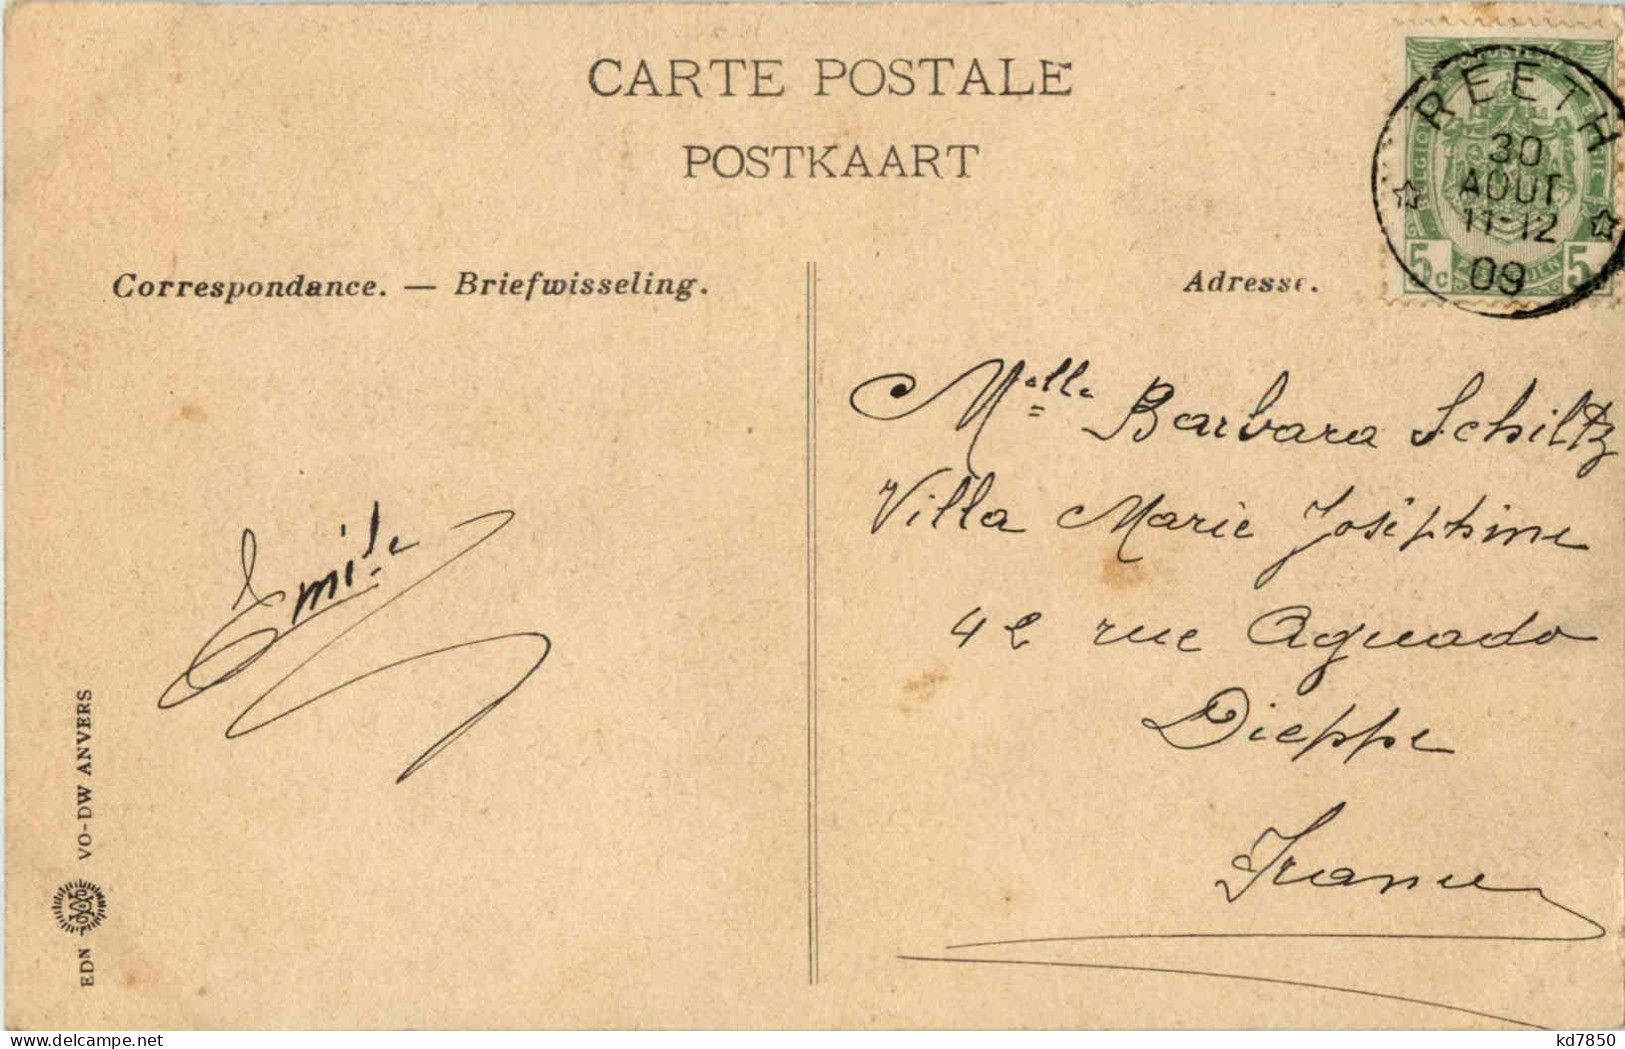 CARTE POSTALE
POSTKAART
Correspondance. — Briefwisseling.
Adresse.
REETH
30
AOUT
11-12
09
5 c 5
Melle Barbara Schiltz
Villa Marie Joséphine
42 rue Aguado
Dieppe
France
Emile
EDN VO-DW ANVERS
delcampe.net
kd7850